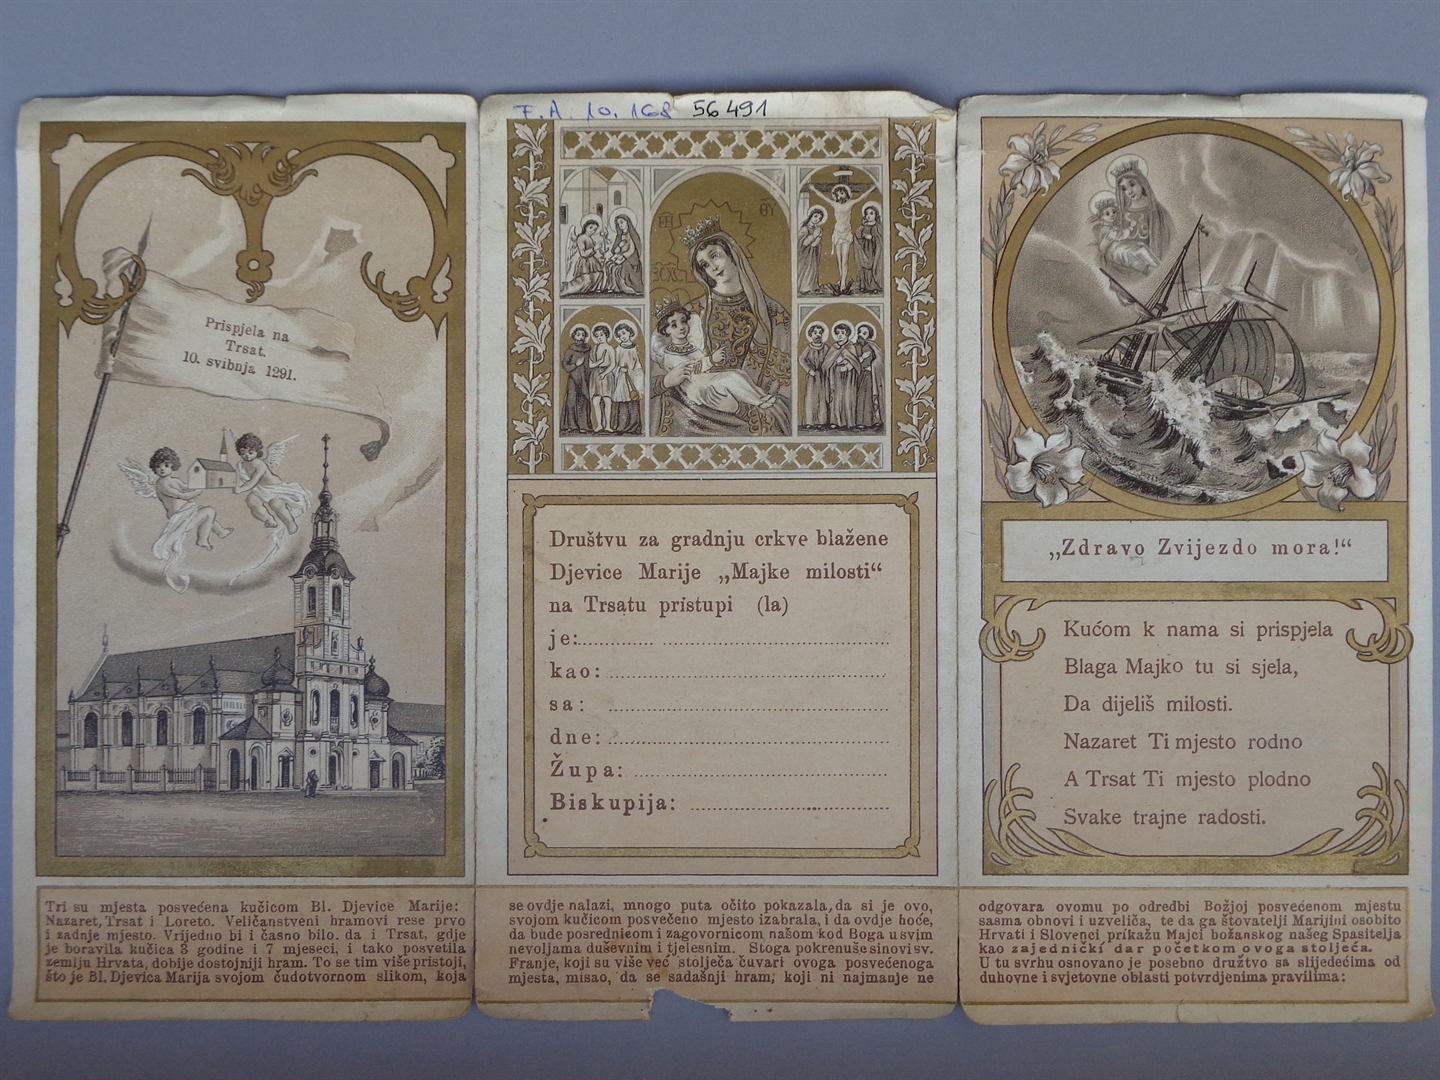 F.A. 10. 168 56491
Prispjela na
Trsat.
10. svibnja 1291.
Tri su mjesta posvećena kućicom Bl. Djevice Marije:
Nazaret, Trsat i Loreto. Veličanstveni hramovi rese prvo
i zadnje mjesto. Vrijedno bi i časno bilo, da i Trsat, gdje
je boravila kućica 3 godine i 7 mjeseci, i tako posvetila
zemlju Hrvata, dobije dostojniji hram. To se tim više pristoji,
što je Bl. Djevica Marija svojom čudotvornom slikom, koja
ΘΥ
Društvu za gradnju crkve blažene
Djevice Marije „Majke milosti“
na Trsatu pristupi (la)
je:
kao:
sa:
dne:
Župa:
Biskupija:
se ovdje nalazi, mnogo puta očito pokazala, da si je ovo,
svojom kućicom posvećeno mjesto izabrala, i da ovdje hoće,
da bude posrednicom i zagovornicom našom kod Boga u svim
nevoljama duševnim i tjelesnim. Stoga pokrenuše sinovi sv.
Franje, koji su više već stoljeća čuvari ovoga posvećenoga
mjesta, misao, da se sadašnji hram, koji ni najmanje ne
„Zdravo Zvijezdo mora!“
Kućom k nama si prispjela
Blaga Majko tu si sjela,
Da dijeliš milosti.
Nazaret Ti mjesto rodno
A Trsat Ti mjesto plodno
Svake trajne radosti.
odgovara ovomu po odredbi Božjoj posvećenom mjestu
sasma obnovi i uzveliča, te da ga štovatelji Marijini osobito
Hrvati i Slovenci prikažu Majci božanskog našeg Spasitelja
kao zajednički dar početkom ovoga stoljeća.
U tu svrhu osnovano je posebno društvo sa slijedećima od
duhovne i svjetovne oblasti potvrdjenima pravilima: